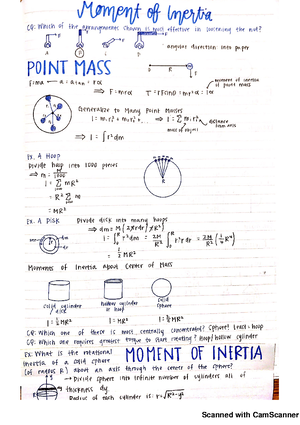 Moment of Inertia
CQ: Which of the arrangements shown is most effective in loosening the nut?
angular direction into paper
POINT MASS
F = ma → a = atan = rα
⇒ F = mrα
τ = rFsinθ = mr²α = Iα
moment of inertia of point mass
Generalize to Many Point Masses
I = m₁r₁² + m₂r₂² ...
⇒ I = Σ mᵢrᵢ²
mass of object
distance from axis
⇒ I = ∫ r² dm
Ex. A Hoop
Divide hoop into 1000 pieces
⇒ m =
I = Σ mR²
= R² Σ m
= MR²
R
Ex. A Disk
Divide disk into many hoops
⇒ dm =
= ½ MR²
Moments of Inertia About Center of Mass
Solid cylinder or disk
Hollow cylinder or hoop
Solid sphere
I = ½ MR²
I = MR²
I = ⅖ MR²
CQ: Which one of these is most centrally concentrated? Sphere! Least = hoop
CQ: Which one requires greatest torque to start rotating? Hoop/hollow cylinder
Ex. What is the rotational
inertia of a solid sphere
MOMENT OF INERTIA
(of radius R) about an axis through the center of the sphere?
→ Divide sphere into infinite number of cylinders all of
thickness dy
Radius of each cylinder is: r = √R²-y²
Scanned with CamScanner